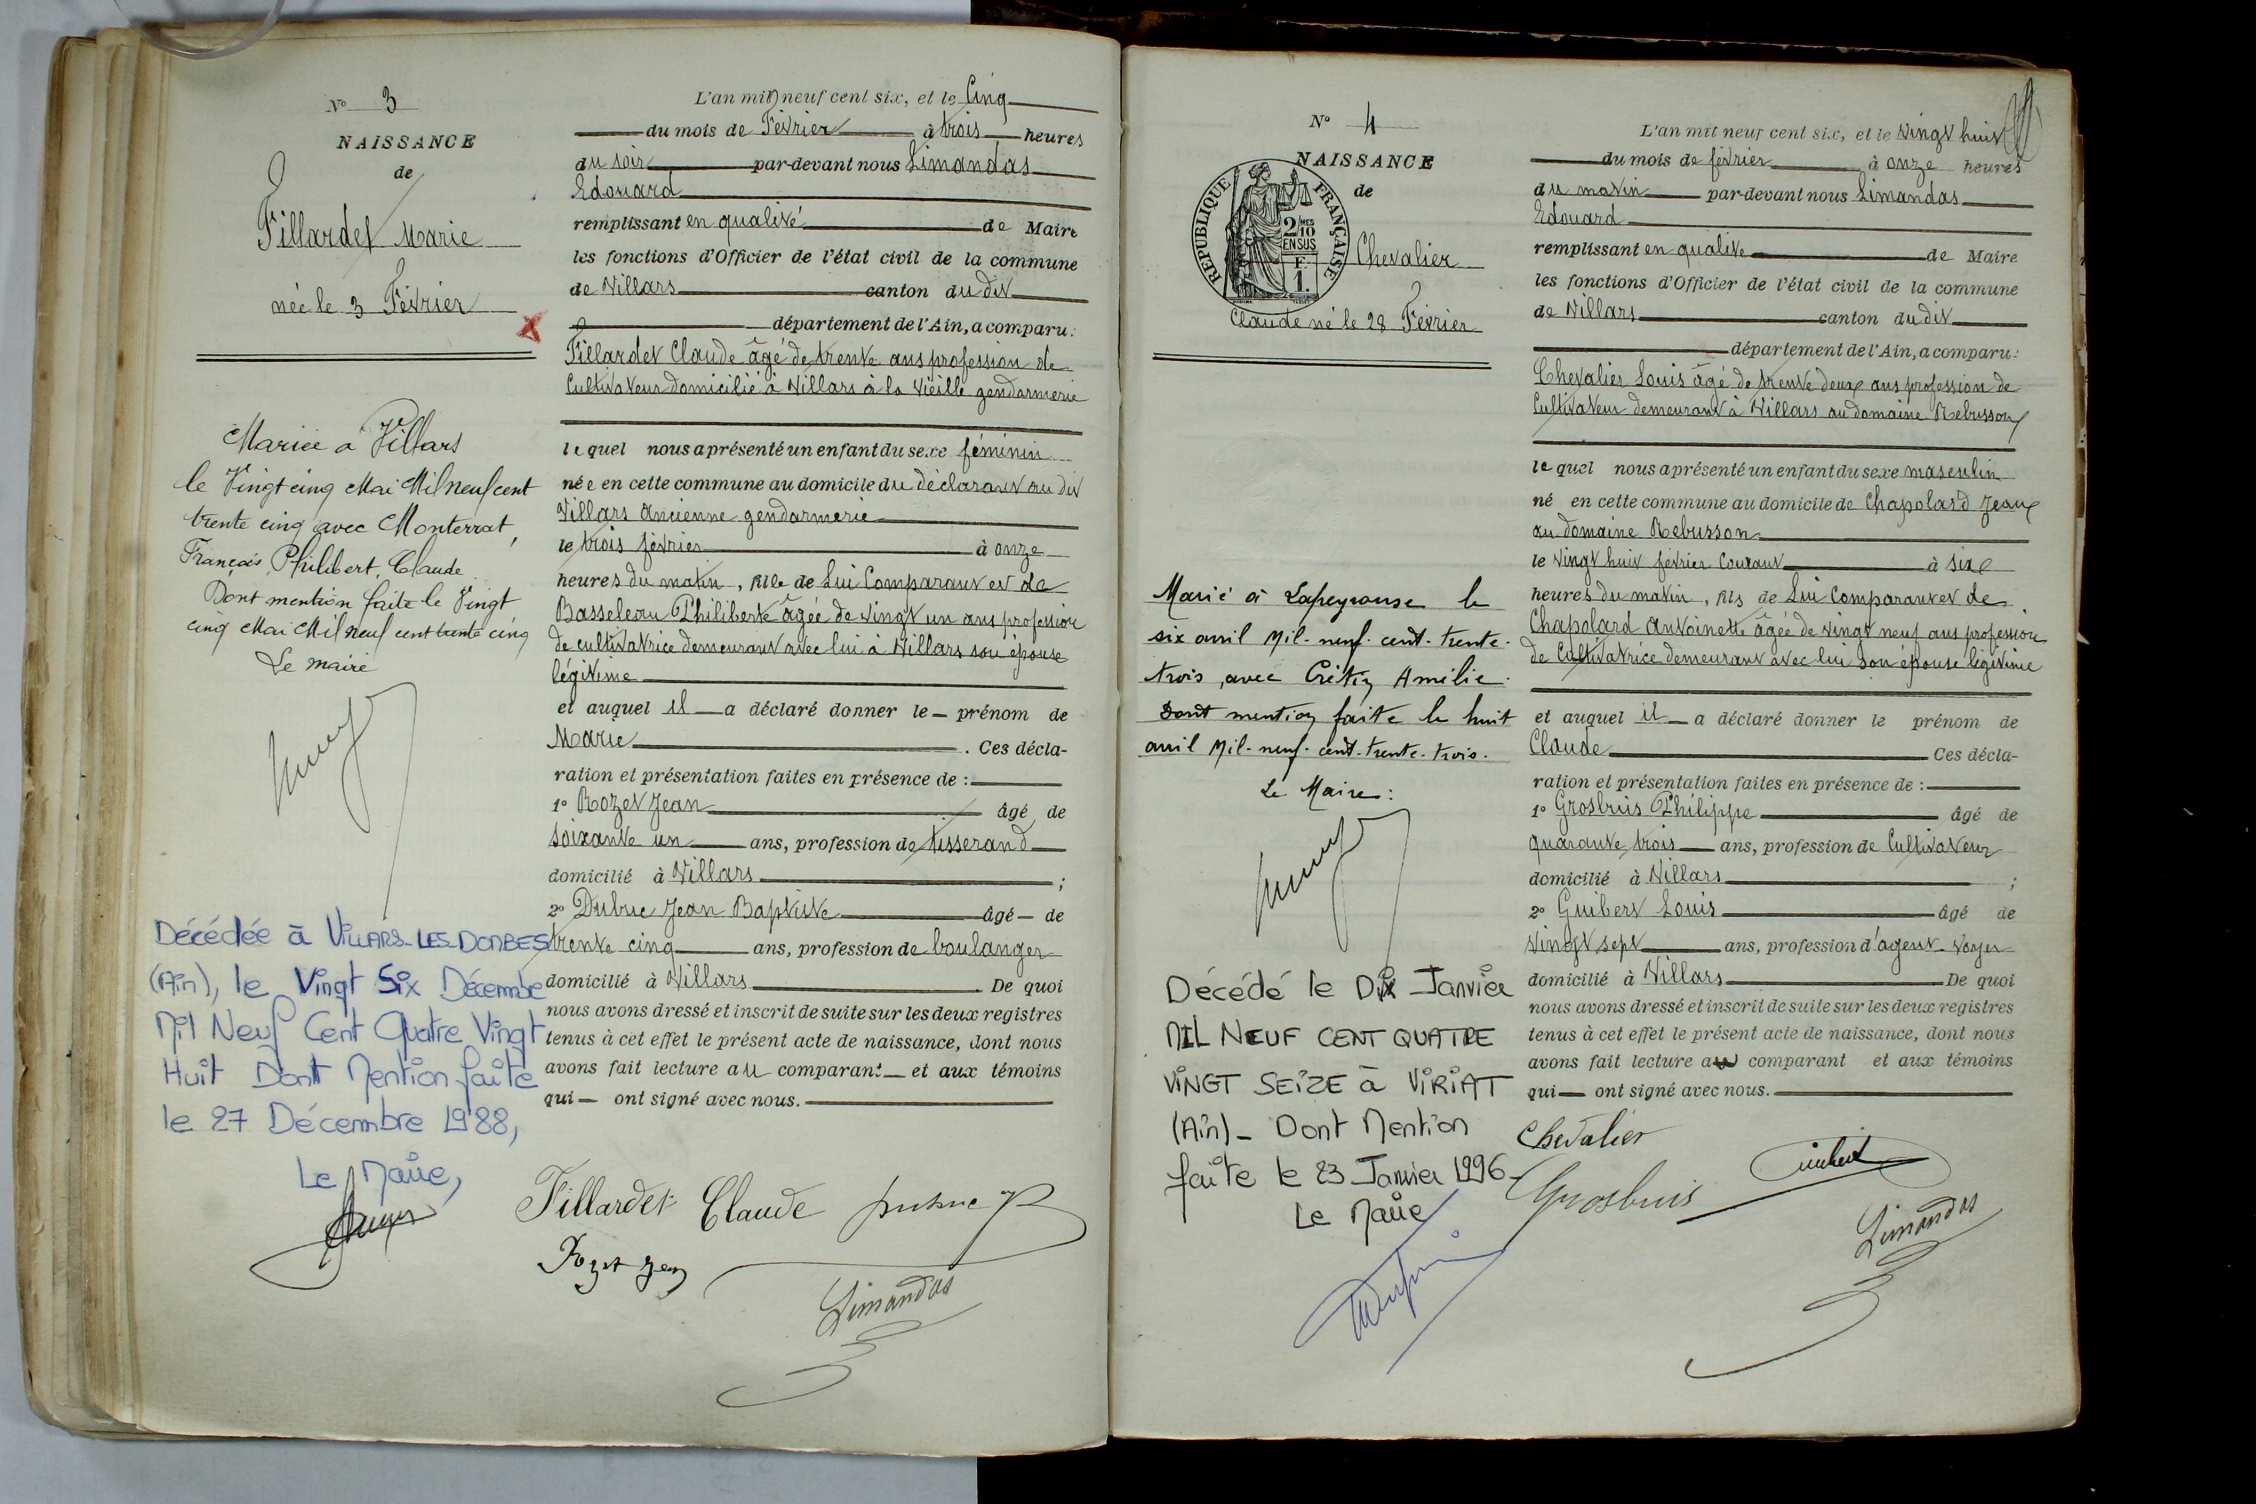 N° 3
NAISSANCE
de
Fillardet Marie
née le 3 Février
Mariée à Villars
le Vingt cinq Mai Mil neuf cent
trente cinq avec Monterrat,
François, Philibert, Claude
Dont mention faite le Vingt
cinq Mai Mil neuf cent trente cinq
Le maire
Décédée à VILLARS-LES-DOMBES
(Ain), le Vingt Six Décembre
Mil Neuf Cent Quatre Vingt
Huit Dont Mention faite
le 27 Décembre 1988,
Le Maire,
L'an mil neuf cent six, et le Cinq
du mois de Février à trois heures
du soir par-devant nous Limandas
Edouard
remplissant en qualité de Maire
les fonctions d'Officier de l'état civil de la commune
de Villars canton du dit
département de l'Ain, a comparu:
Fillardet Claude âgé de trente ans profession de
Cultivateur domicilié à Villars à la Vieille gendarmerie
lequel nous a présenté un enfant du sexe féminin
née en cette commune au domicile du déclarant au dit
Villars ancienne gendarmerie
le trois février à onze
heures du matin, fille de Lui Comparant et de
Basseleau Philiberte âgée de vingt un ans profession
de cultivatrice demeurant avec lui à Villars son épouse
légitime
et auquel il a déclaré donner le prénom de
Marie. Ces décla-
ration et présentation faites en présence de :
1° Rozet Jean âgé de
soixante un ans, profession de tisserand
domicilié à Villars ;
2° Dubuc Jean Baptiste âgé de
trente cinq ans, profession de boulanger
domicilié à Villars De quoi
nous avons dressé et inscrit de suite sur les deux registres
tenus à cet effet le présent acte de naissance, dont nous
avons fait lecture au comparant et aux témoins
qui ont signé avec nous.
Fillardet Claude Dubuc
Rozet Jean
Limandas
N° 4
NAISSANCE
de
REPUBLIQUE FRANÇAISE
2/10
EN SUS
F.
1.
Chevalier
Claude né le 28 Février
Marié à Lapeyrouse le
six avril Mil-neuf-cent-trente-
trois, avec Crétin Amélie.
Dont mention faite le huit
avril Mil-neuf-cent-trente-trois.
Le Maire:
Décédé le Dix Janvier
MIL NEUF CENT QUATRE
VINGT SEIZE à VIRIAT
(Ain)_ Dont Mention
faite le 23 Janvier 1996
Le Maire
L'an mil neuf cent six, et le vingt huit
du mois de février à onze heures
du matin par-devant nous Limandas
Edouard
remplissant en qualité de Maire
les fonctions d'Officier de l'état civil de la commune
de Villars canton du dit
département de l'Ain, a comparu:
Chevalier Louis âgé de trente deux ans profession de
Cultivateur demeurant à Villars au domaine Rebusson
lequel nous a présenté un enfant du sexe masculin
né en cette commune au domicile de Chapolard Jean
au domaine Rebusson
le vingt huit février Courant à six
heures du matin, fils de Lui Comparant et de
Chapolard Antoinette âgée de vingt neuf ans profession
de Cultivatrice demeurant avec lui son épouse légitime
et auquel il a déclaré donner le prénom de
Claude Ces décla-
ration et présentation faites en présence de :
1° Grosbuis Philippe âgé de
quarante trois ans, profession de Cultivateur
domicilié à Villars ;
2° Guibert Louis âgé de
vingt sept ans, profession d'agent-voyer
domicilié à Villars De quoi
nous avons dressé et inscrit de suite sur les deux registres
tenus à cet effet le présent acte de naissance, dont nous
avons fait lecture au comparant et aux témoins
qui ont signé avec nous.
Chevalier
Guibert
Grosbuis
Limandas